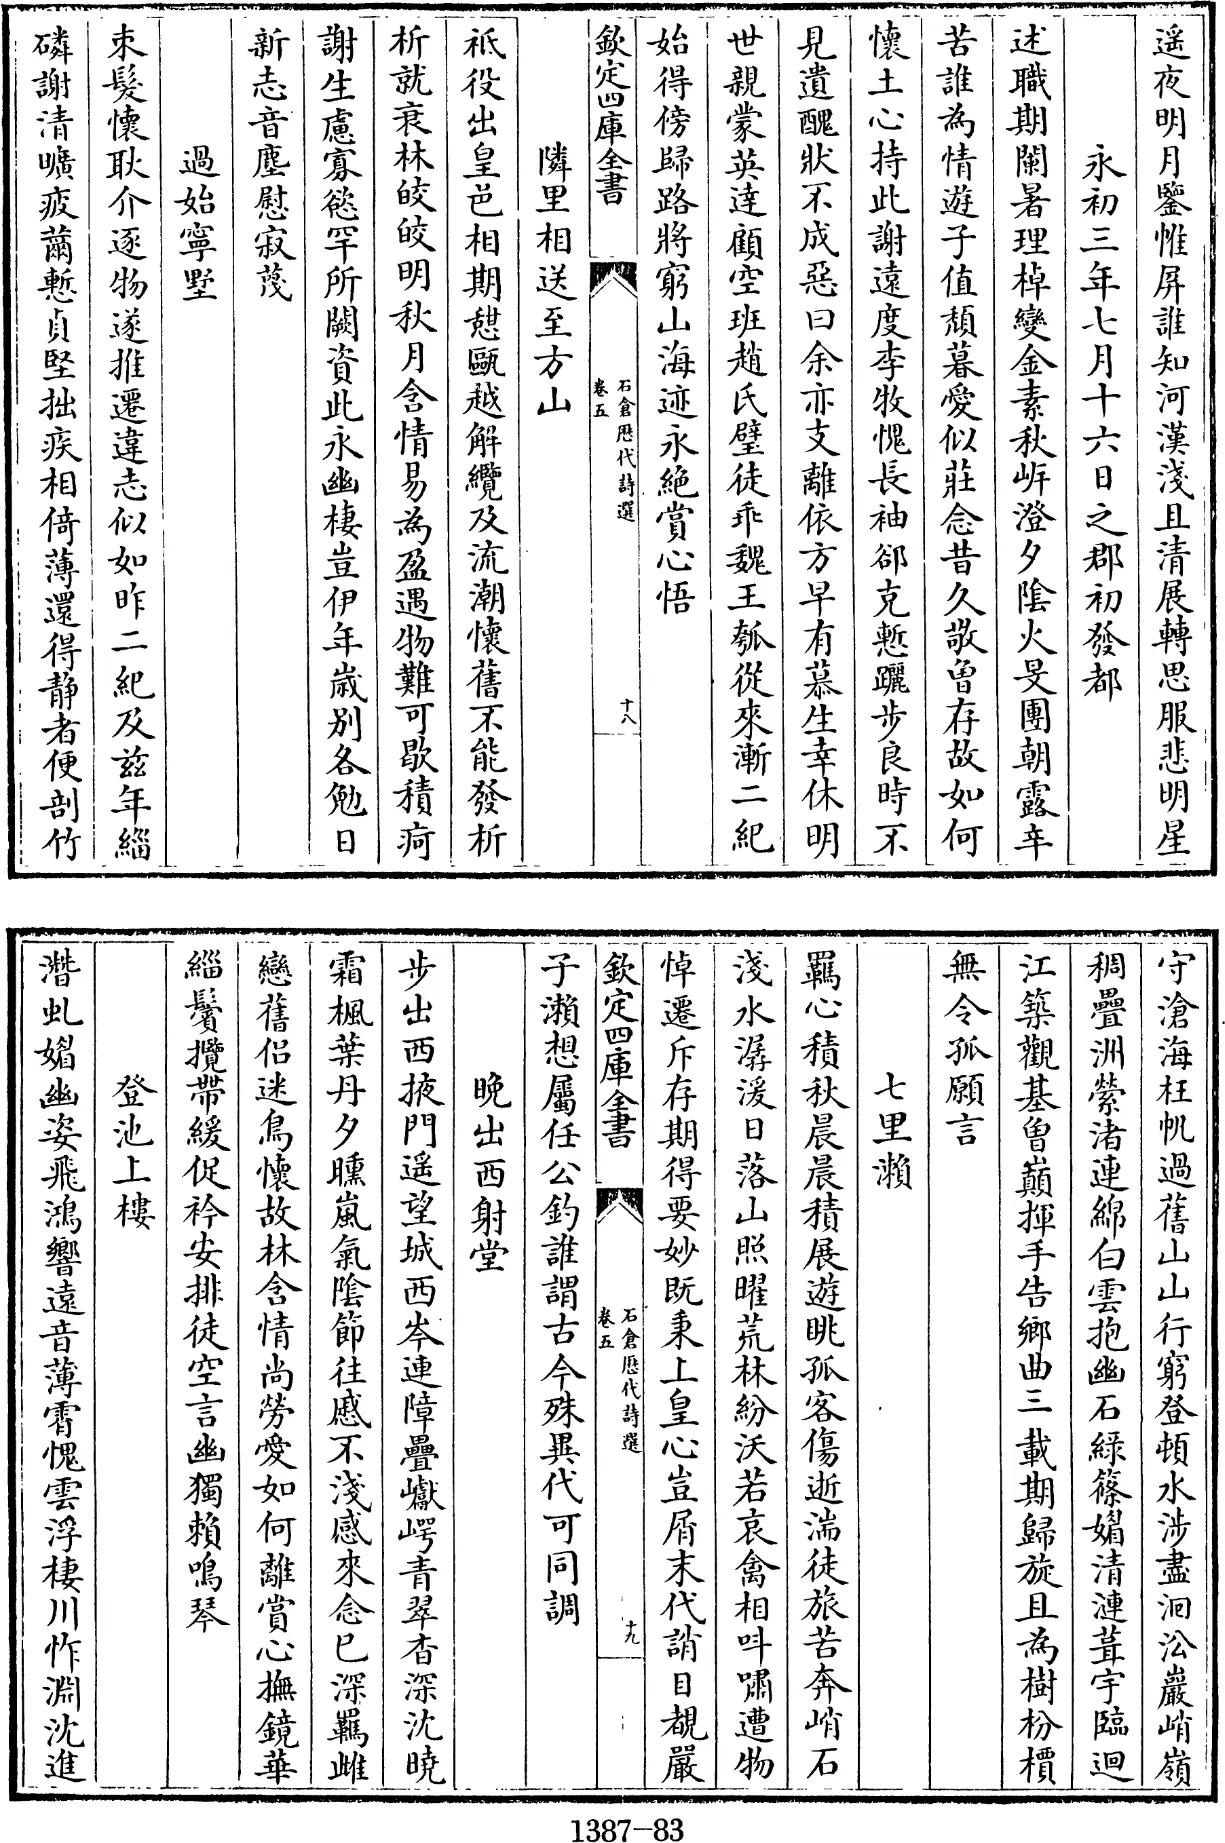 遥夜明月鑒惟屏誰知河漢淺且清展轉思服悲明星
永初三年七月十六日之郡初發都
述職期闌暑理棹變金素秋岸澄夕陰火旻團朝露辛
苦誰為情遊子值頽暮愛似莊念昔久敬曽存故如何
懷土心持此謝遠度李牧愧長袖郤克慙躧步良時不
見遺醜狀不成惡曰余亦支離依方早有慕生幸休明
世親蒙英達顧空班趙氏璧徒乖魏王瓠從來漸二紀
始得傍歸路將窮山海迹永絶賞心悟
欽定四庫全書
石倉歴代詩選
卷五
十八
隣里相送至方山
祗役出皇邑相期憇甌越解纜及流潮懷舊不能發析
析就衰林皎皎明秋月含情易為盈遇物難可歇積疴
謝生慮寡慾罕所闕資此永幽棲豈伊年歲别各勉日
新志音塵慰寂蔑
過始寧墅
束髮懷耿介逐物遂推遷違志似如昨二紀及兹年緇
磷謝清曠疲薾慙貞堅拙疾相倚薄還得静者便剖竹
守滄海枉帆過舊山山行窮登頓水涉盡洄沿巖峭嶺
稠疊洲縈渚連綿白雲抱幽石緑篠媚清漣葺宇臨迴
江築觀基曽巔揮手告鄉曲三載期歸旋且為樹枌檟
無令孤願言
七里瀨
羈心積秋晨晨積展遊眺孤客傷逝湍徒旅苦奔峭石
淺水潺湲日落山照曜荒林紛沃若哀禽相呌嘯遭物
悼遷斥存期得要妙既秉上皇心豈屑末代誚目覩嚴
欽定四庫全書
石倉歴代詩選
卷五
十九
子瀨想屬任公釣誰謂古今殊異代可同調
晚出西射堂
步出西掖門遥望城西岑連障疊巘崿青翠杳深沈曉
霜楓葉丹夕曛嵐氣陰節往慼不淺感來念已深羈雌
戀舊侣迷鳥懷故林含情尚勞愛如何離賞心撫鏡華
緇鬢攬帶緩促衿安排徒空言幽獨賴鳴琴
登池上樓
潛虬媚幽姿飛鴻響遠音薄霄愧雲浮棲川怍淵沈進
1387-83